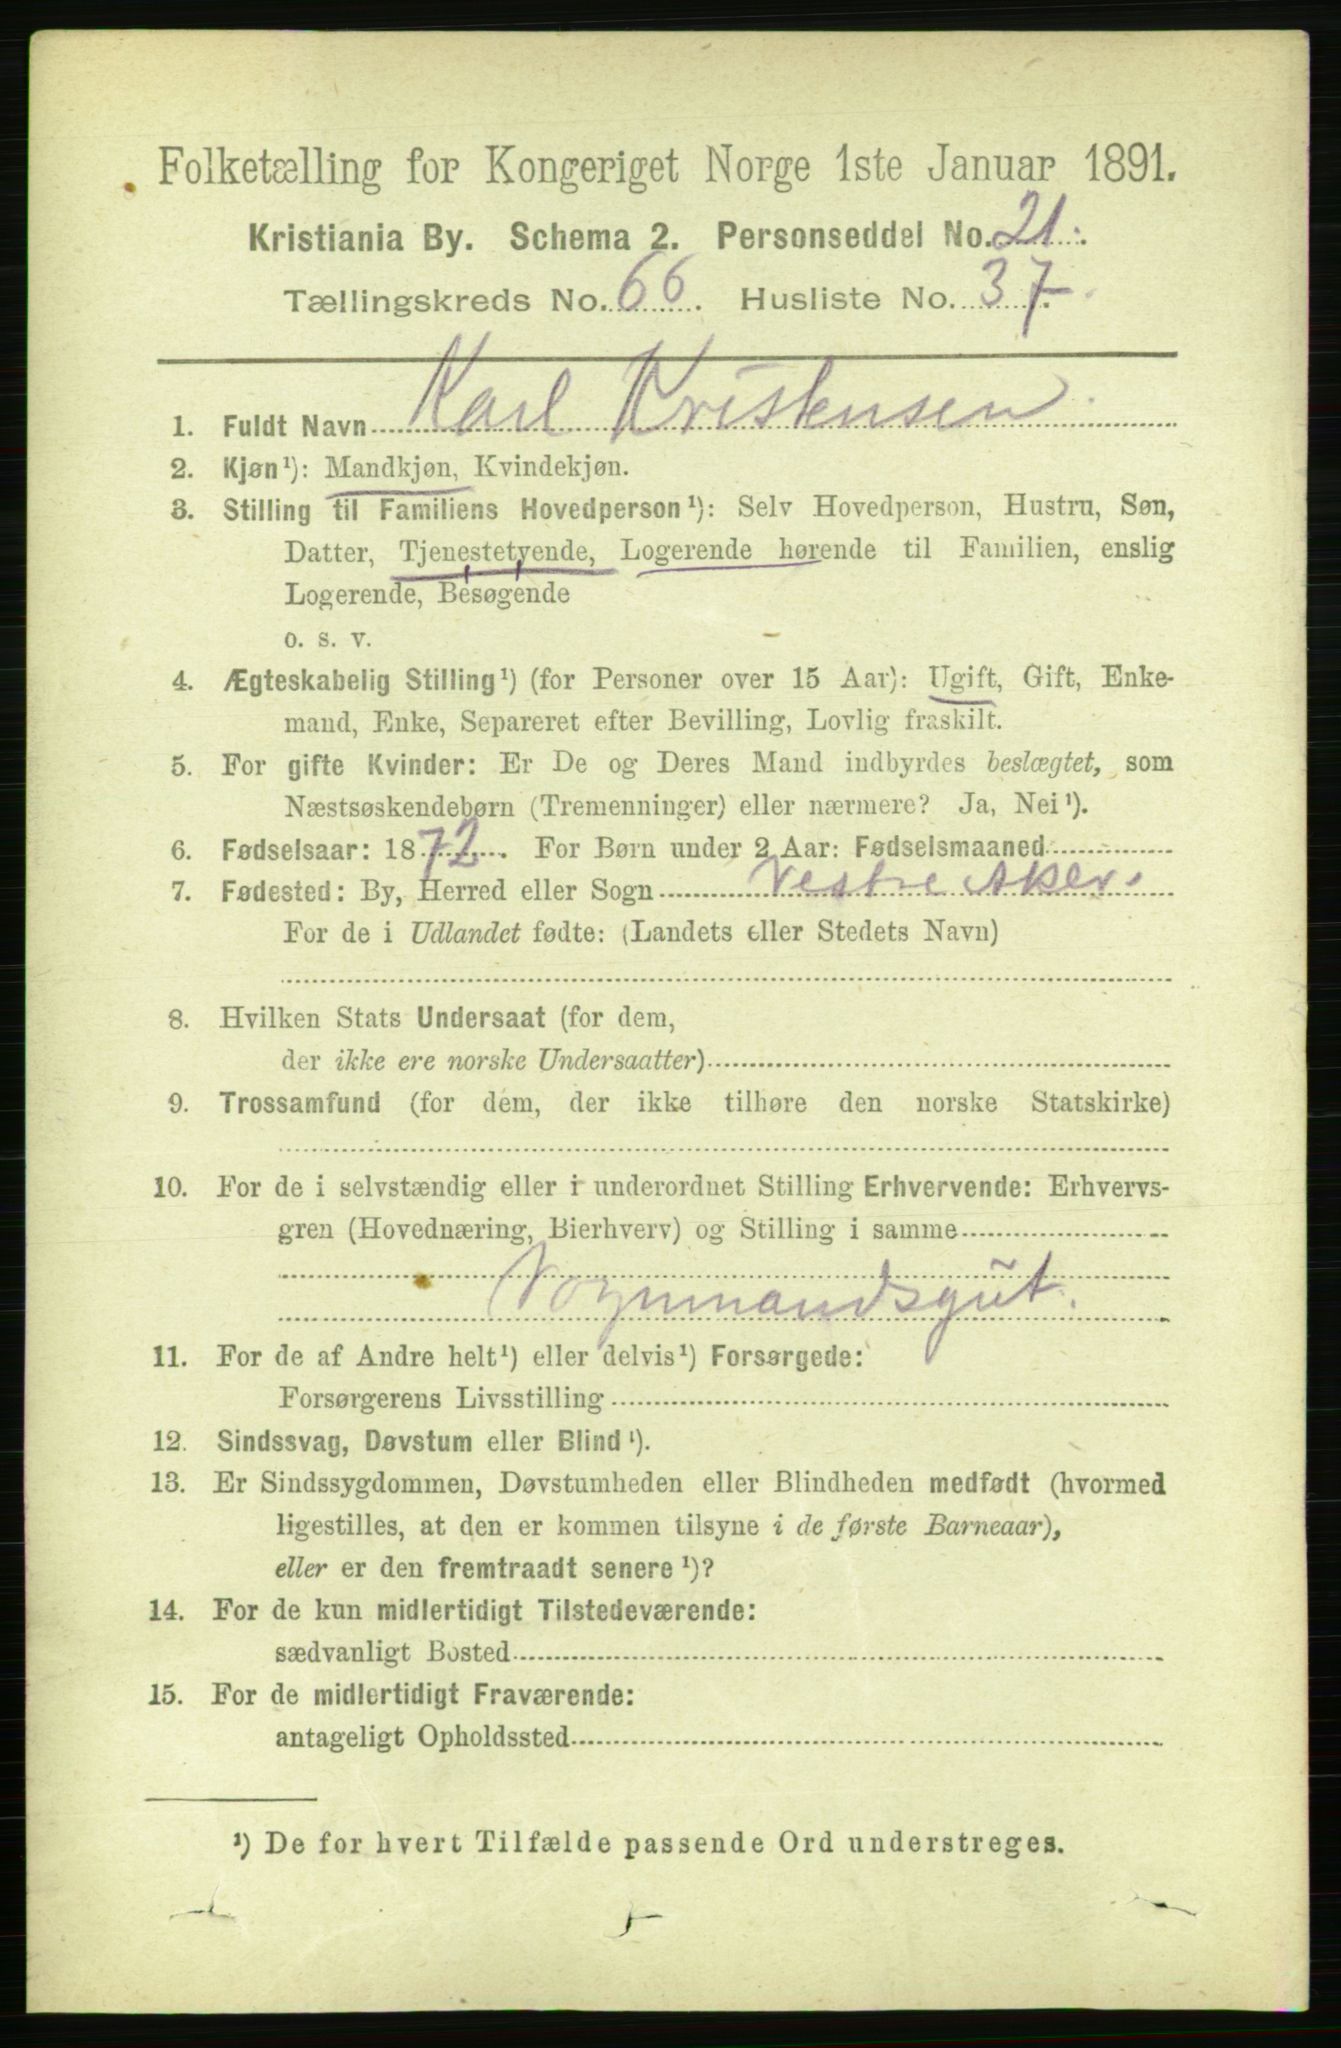 Folketælling for Kongeriget Norge 1ste Januar 1891.
Kristiania By. Schema 2. Personseddel No. 21.
Tællingskreds No. 66. Husliste No. 37.
1. Fuldt Navn Karl Kristensen
2. Kjøn¹): Mandkjøn, Kvindekjøn.
3. Stilling til Familiens Hovedperson¹): Selv Hovedperson, Hustru, Søn,
Datter, Tjenestetyende, Logerende hørende til Familien, enslig
Logerende, Besøgende
o. s. v.
4. Ægteskabelig Stilling¹) (for Personer over 15 Aar): Ugift, Gift, Enke-
mand, Enke, Separeret efter Bevilling, Lovlig fraskilt.
5. For gifte Kvinder: Er De og Deres Mand indbyrdes beslægtet, som
Næstsøskendebørn (Tremenninger) eller nærmere? Ja, Nei¹).
6. Fødselsaar: 1872. For Børn under 2 Aar: Fødselsmaaned
7. Fødested: By, Herred eller Sogn Vestre Aker.
For de i Udlandet fødte: (Landets eller Stedets Navn)
8. Hvilken Stats Undersaat (for dem,
der ikke ere norske Undersaatter)
9. Trossamfund (for dem, der ikke tilhøre den norske Statskirke)
10. For de i selvstændig eller i underordnet Stilling Erhvervende: Erhvervs-
gren (Hovednæring, Bierhverv) og Stilling i samme
Vognmandsgut.
11. For de af Andre helt¹) eller delvis¹) Forsørgede:
Forsørgerens Livsstilling
12. Sindssvag, Døvstum eller Blind¹).
13. Er Sindssygdommen, Døvstumheden eller Blindheden medfødt (hvormed
ligestilles, at den er kommen tilsyne i de første Barneaar),
eller er den fremtraadt senere¹)?
14. For de kun midlertidigt Tilstedeværende:
sædvanligt Bosted
15. For de midlertidigt Fraværende:
antageligt Opholdssted
¹) De for hvert Tilfælde passende Ord understreges.